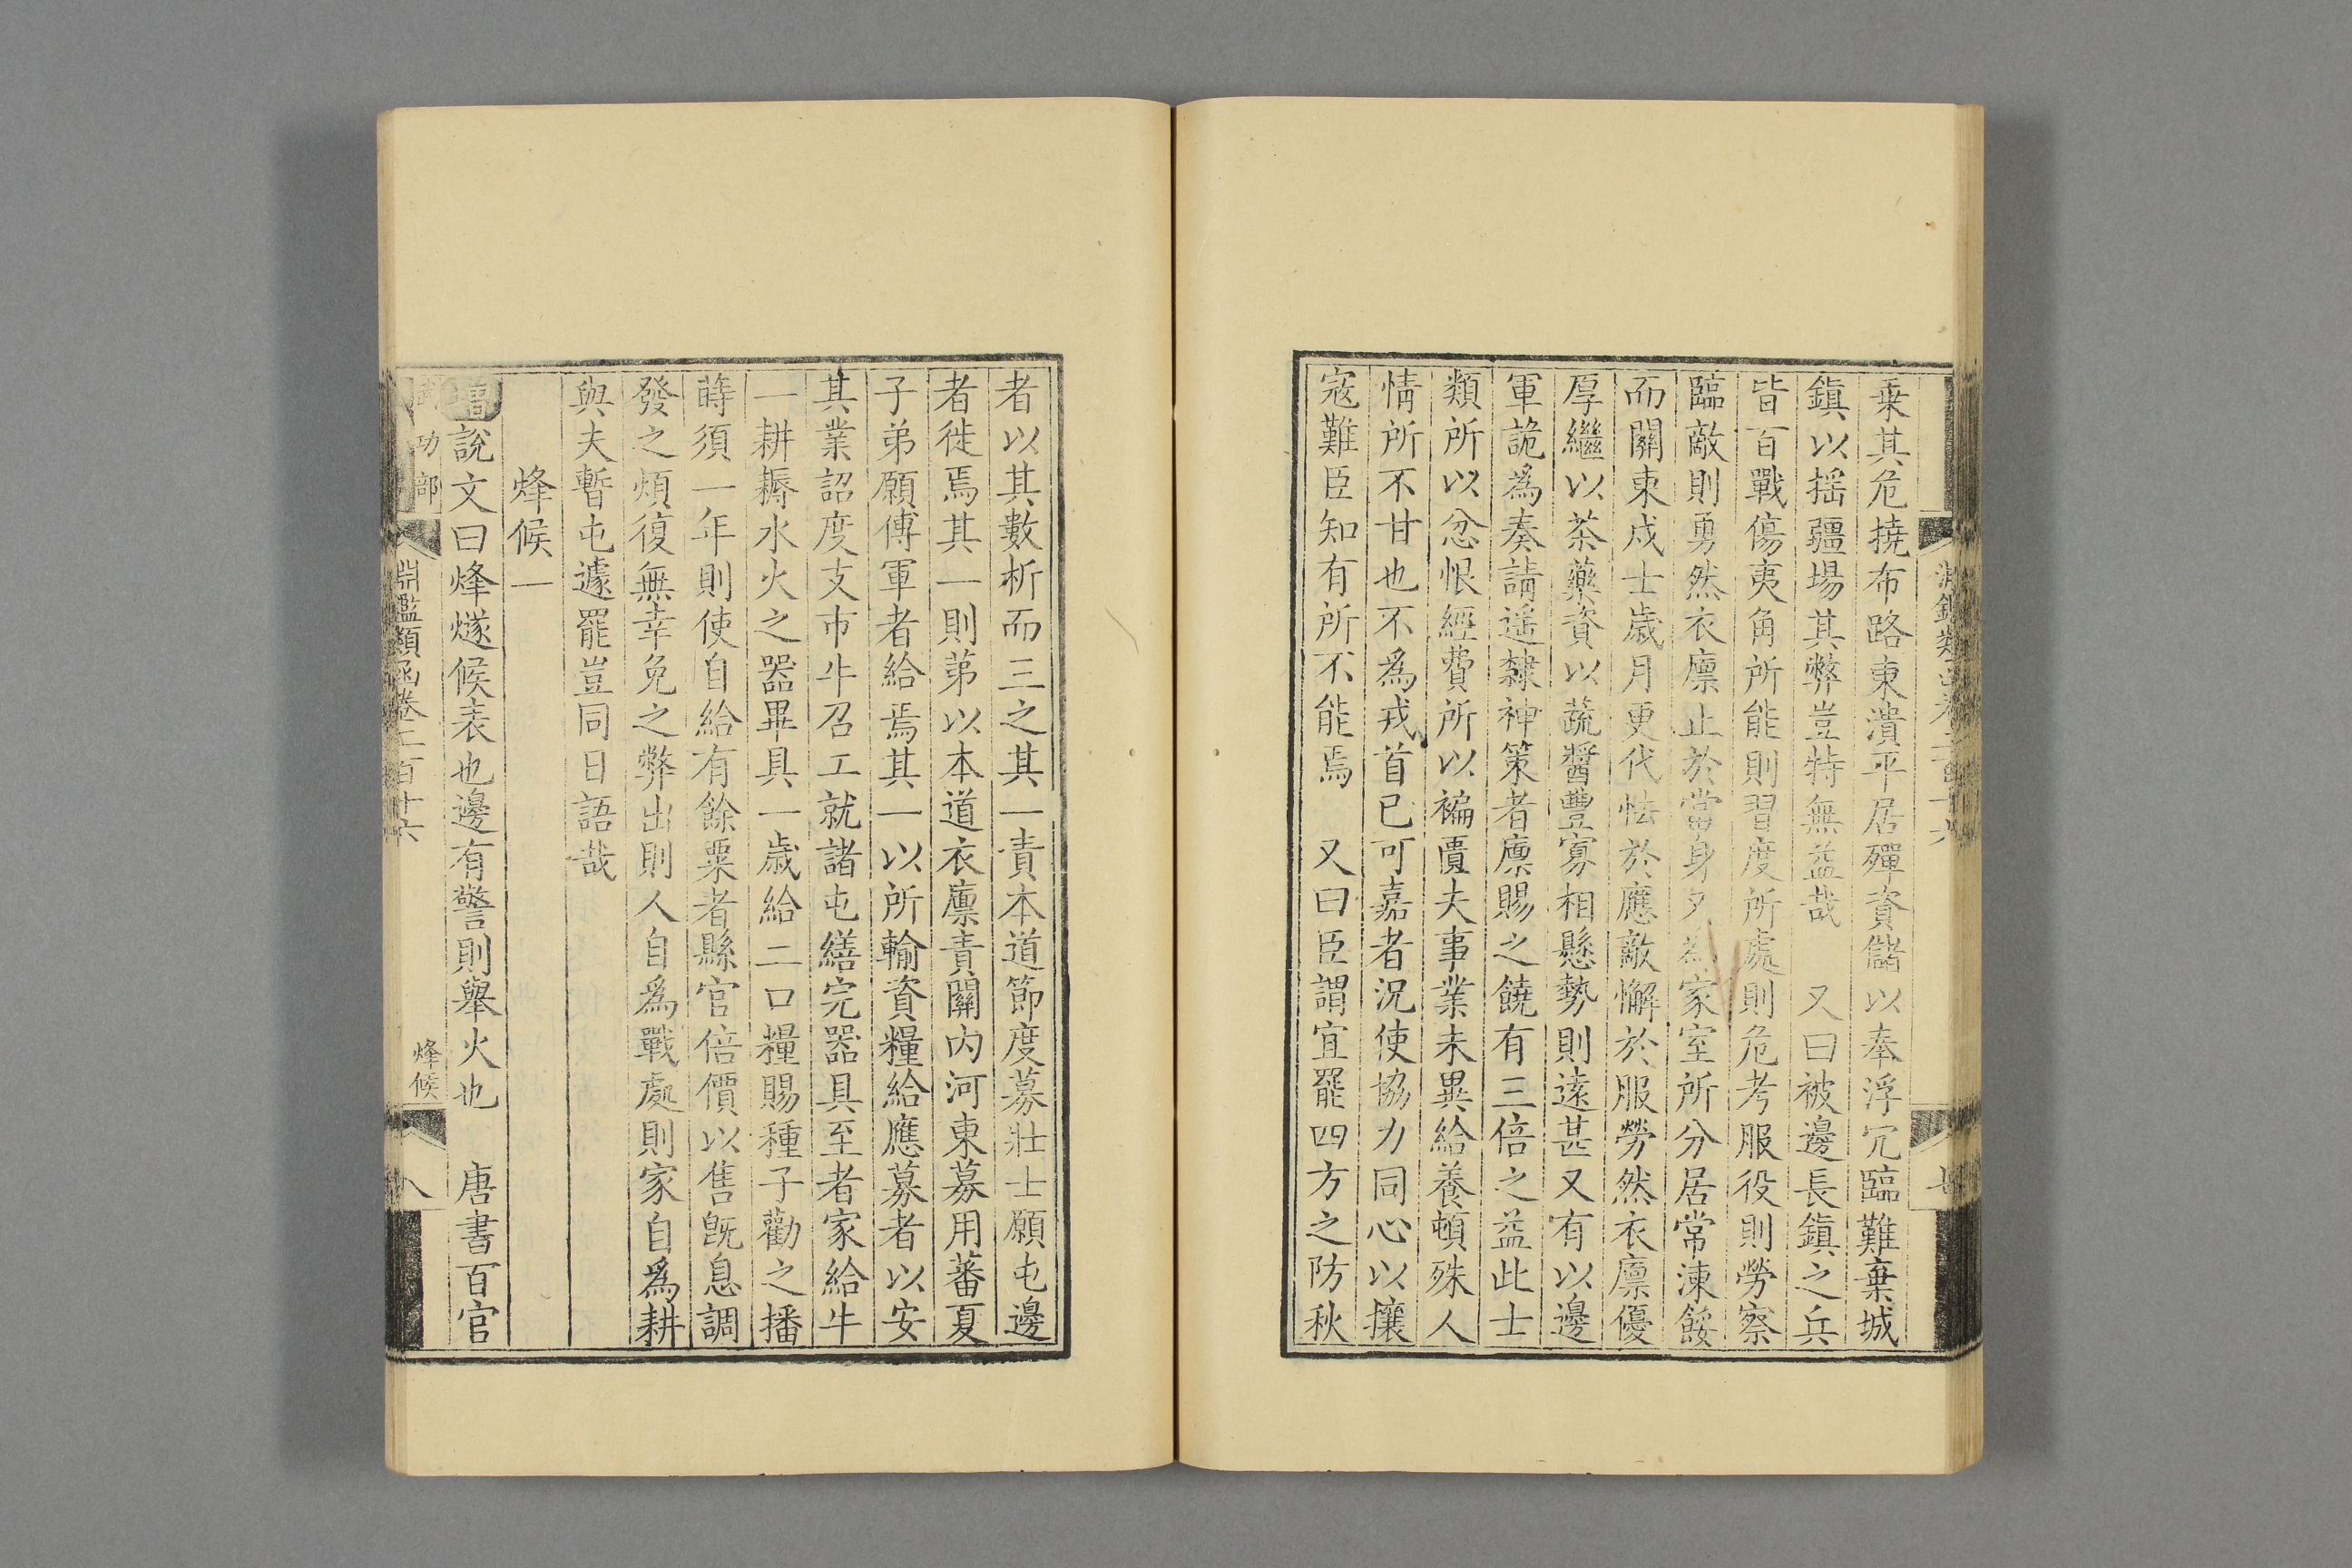 乗其危撓布路東潰平居殫資儲以奉浮冗臨難棄城
鎮以摇疆場其弊豈特無益哉 又曰被邊長鎮之兵
皆百戰傷夷角所能則習度所處則危考服役則勞察
臨敵則勇然衣廪止於當身 為家室所分居常凍餒
而關東戍士歲月更代怯於應敵懈於服勞然衣廪優
厚繼以茶藥資以蔬醬豐寡相懸勢則遠甚又有以邊
軍詭為奏請遥隸神策者廪賜之饒有三倍之益此士
類所以忿恨經費所以褊匱夫事業未異給養頓殊人
情所不甘也不為戎首已可嘉者況使協力同心以攘
寇難臣知有所不能焉 又曰臣謂宜罷四方之防秋
者以其數析而三之其一責本道節度募壯士願屯邊
者徙焉其一則第以本道衣廪責關内河東募用蕃夏
子弟願傅軍者給焉其一以所輸資糧給應募者以安
其業詔度支市牛召工就諸屯繕完器具至者家給牛
一耕耨水火之器畢具一歲給二口糧賜種子勸之播
蒔須一年則使自給有餘粟者縣官倍價以售旣息調
發之煩復無幸免之弊出則人自為戰處則家自為耕
與夫暫屯遽罷豈同日語哉
烽候一
增說文曰烽燧候表也邊有警則舉火也 唐書百官
武功部 淵鑑類函卷二百十六 烽候 八